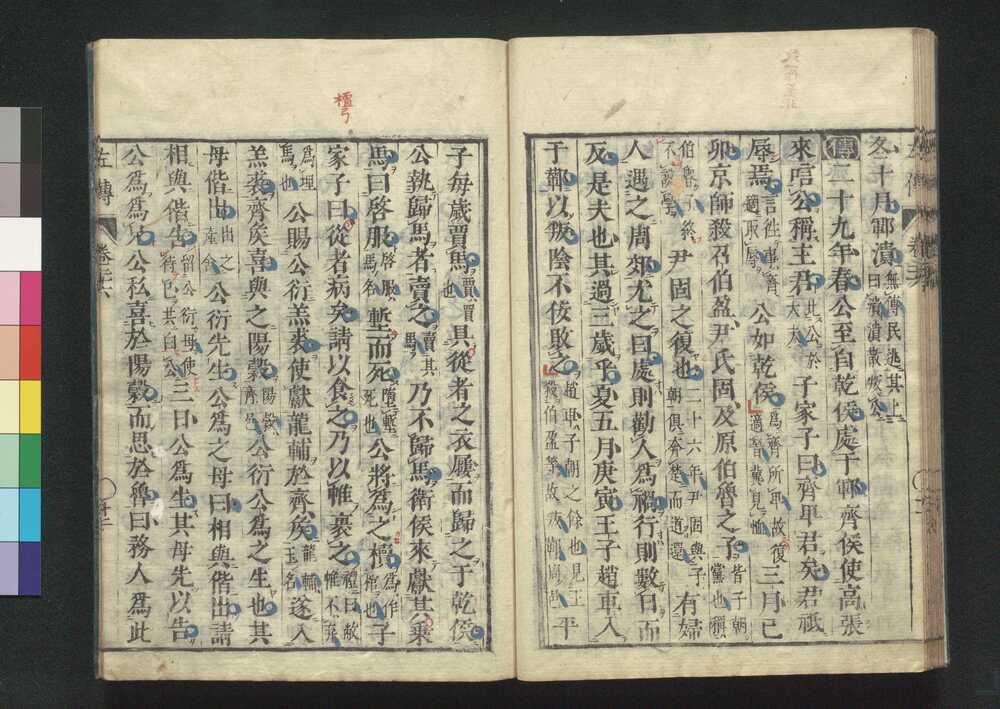 冬十月鄆潰無傳民逃其上曰潰潰散叛公
傳二十九年春公至自乾侯處于鄆齊侯使高張
來唁公稱主君比公於大夫子家子曰齊卑君矣君祗
辱焉言往事齊適取辱公如乾侯爲齊所卑故復適晉冀見恤三月己
卯京師殺召伯盈尹氏固及原伯魯之子皆子朝黨也稱
伯魯子終不說學尹固之復也二十六年尹固與子朝俱奔楚而道還有婦
人遇之周郊尤之曰處則勸人爲禍行則數日而
反是夫也其過三歲乎夏五月庚寅王子趙車入
于鄻以叛陰不佞敗之趙車子朝之餘也見王殺伯盈等故叛鄻周邑平
子每歲賈馬賈買也具從者之衣屨而歸之于乾侯
公執歸馬者賣之賣其馬乃不歸馬衛侯來獻其乘
馬曰啓服啓服馬名塹而死墮塹死也公將爲之櫝爲作棺也子
家子曰從者病矣請以食之乃以帷裹之禮曰敝帷不棄
爲埋馬也公賜公衍羔裘使獻龍輔於齊侯龍輔玉名遂入
羔裘齊侯喜與之陽穀陽穀齊邑公衍公爲之生也其
母偕出出之產舍公衍先生公爲之母曰相與偕出請
相與偕告留公衍母使待已共白公三日公爲生其母先以告
公爲爲兄公私喜於陽穀而思於魯曰務人爲此
左傳
卷二十六
檀弓